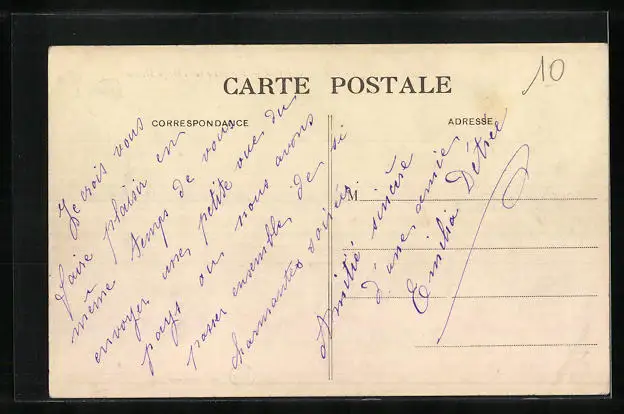 10
CARTE POSTALE
CORRESPONDANCE
ADRESSE
M
Je crois vous
faire plaisir en
même temps de vous
envoyer une petite vue du
pays ou nous avons
passer ensemble de si
charmantes soirées
Amitié sincère
d'une amie
Emilia Détrée